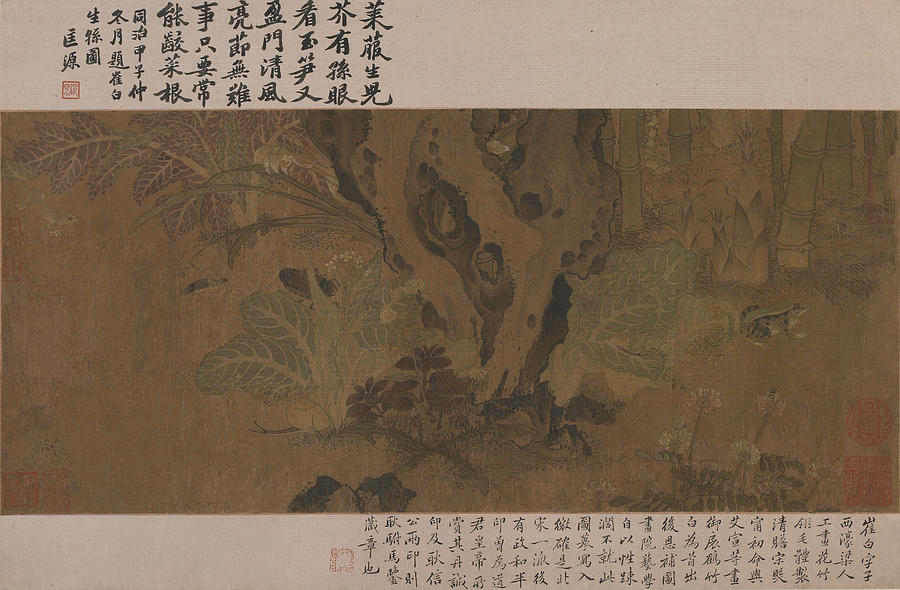 莱菔生兒
芥有孫眼
看玉笋又
盈門清風
亮節無難
事只要常
能齩菜根
同治甲子仲
冬月題崔白
生孫圖
匡源
崔白字子
西濠梁人
工畫花竹
翎毛體製
清贍宋熙
甯初命與
艾宣等畫
御扆鶴竹
白為首出
後恩補圖
畫院藝學
白以性踈
濶不就此
圖摹寫入
微確是北
宋一派後
有政和半
印曾為道
君皇帝所
賞其丹誠
印及耿信
公兩印則
耿駙馬鑒
藏章也